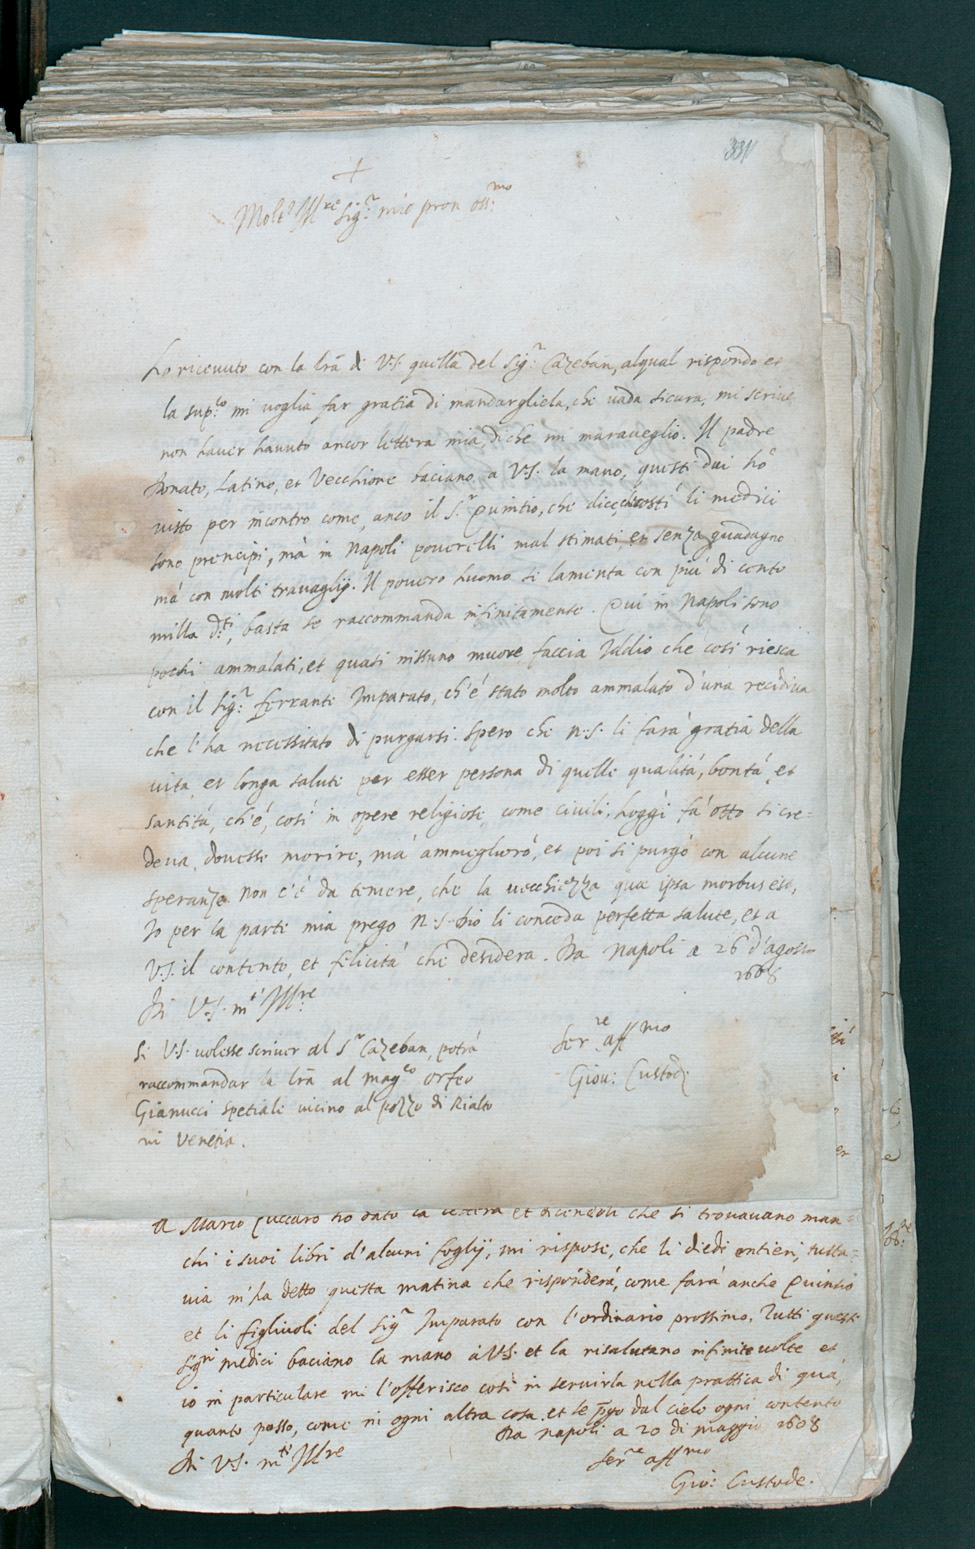 331
+
Molt' Ill.re Sig.r mio pron oss.mo
Ho ricevuto con la lrã di V.S. quella del Sig.r Cazeban, alqual rispondo et
la sup.co mi voglia far gratia di mandargliela, che vada sicura, mi scrive
non haver havuto ancor lettera mia, di che mi maraveglio. Il padre
Donato, Latino, et Vecchione baciano a V.S. la mano, questi dui hò
visto per incontro come anco il S.r Quintio, che dice costì li medici
sono prencipi, mà in Napoli poverelli mal stimati, et senza guadagno
mà con molti travaglij. Il povero huomo si lamenta con più di cento
milla d.ti, basta se raccommanda infinitamente. Qui in Napoli sono
pochi ammalati, et quasi nissuno muore faccia Iddio che così riesca
con il Sig.r Ferrante Imparato, ch'è stato molto ammalato d'una recidiva
che l'ha necessitato di purgarsi. Spero che N.S. li farà gratia della
vita, et longa salute per esser persona di quelle qualità, bontà, et
santità, ch'è, così in opere religiose, come civili, hoggi fà otto si cre=
deva, dovesse morire, mà ammegliorò, et poi si purgò con alcune
speranze non c'è da temere, che la vecchiezza quæ ipsa morbus est,
Io per la parte mia prego N.S. Dio li conceda perfetta salute, et a
V.S. il contento, et felicità che desidera. Da Napoli a 26 d'agosto
1608
Di V.S. m.to Ill.re
Se V.S. volesse scriver al S.r Cazeban, potrà
raccommandar la lrã al mag.co Orfeo
Gianucci spetiale vicino al pozzo di Rialto
in Venetia.
Ser.re aff.mo
Giov: Custode
A Mario Zuccaro ho dato la lettera et dicendoli che si trovavano man
chi i suoi libri d'alcuni foglij, mi rispose, che li diedi entieri, tutta=
via m'ha detto questa matina che risponderà, come farà anche Quintio
et li figliuoli del Sig.r Imparato con l'ordinario prossimo. Tutti questi
Sig.ri medici baciano la mano à V.S. et la risalutano infinite volte et
io in particulare mi l'offerisco così in servirla nella prattica di quà,
quanto posso, come in ogni altra cosa et le p̃go dal cielo ogni contento
Da Napoli a 20 di maggio 1608
Di V.S. m.to Ill.re
Ser.re aff.mo
Gio: Custode.